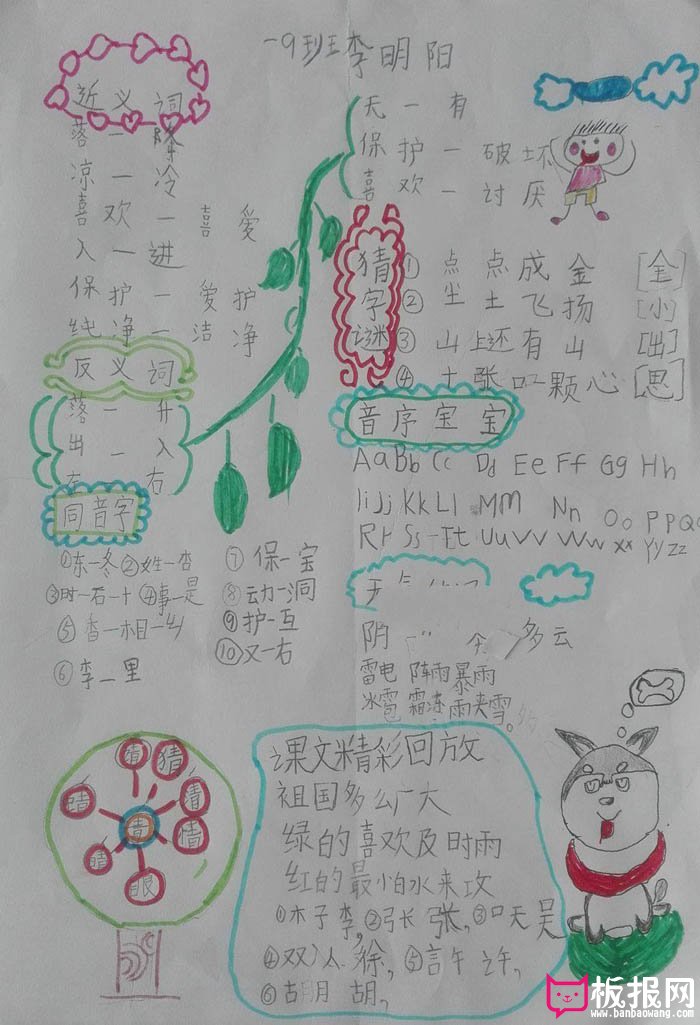 一9班李明阳
近义词
落一降
凉一冷
喜欢一喜爱
入一进
保护一爱护
纯净一洁净
反义词
落一升
出一入
左一右
无一有
保护一破坏
喜欢一讨厌
猜字谜
①点点成金[全]
②尘土飞扬[小]
③山上还有山[出]
④十张口一颗心[思]
音序宝宝
Aa Bb Cc Dd Ee Ff Gg Hh
Ii Jj Kk Ll Mm Nn Oo Pp Qq
Rr Ss Tt Uu Vv Ww Xx Yy Zz
同音字
①东一冬②姓一杏
③时一石一十④事一是
⑤香一相一乡
⑥李一里
⑦保一宝
⑧动一洞
⑨护一互
⑩又一右
阴 多云
雷电 阵雨 暴雨
冰雹 霜冻 雨夹雪。
猜
清
情
眼
睛
晴
青
课文精彩回放
祖国多么广大
绿的喜欢及时雨
红的最怕水来攻
①木子李，②弓长张，③口天吴
④双人徐，⑤言午许，
⑥胡月胡，
板报网
www.banbaowang.com